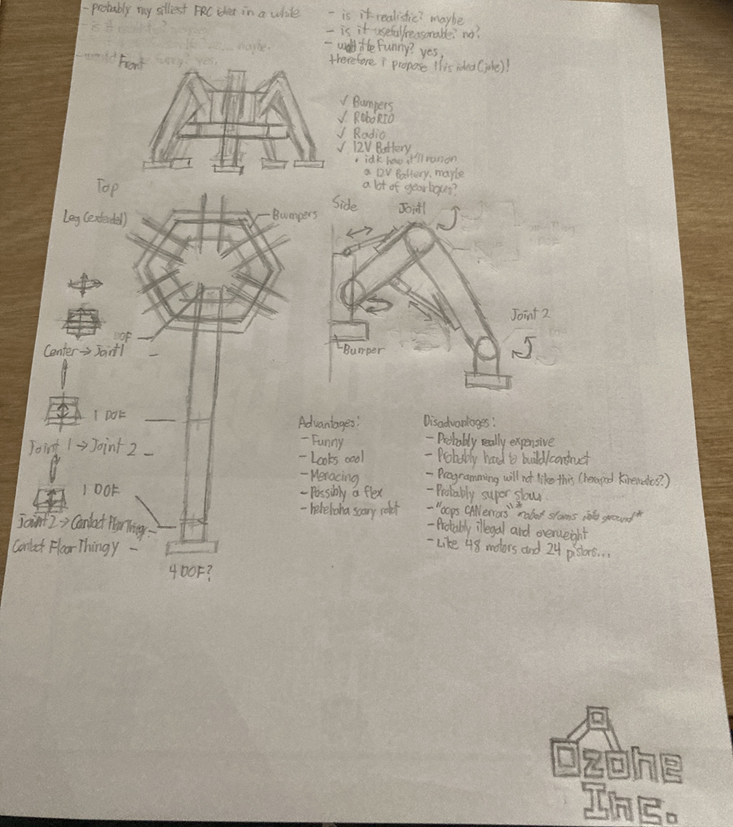 - probably my silliest FRC idea in a while
- is it realistic? maybe
- is it useful/reasonable? no?
- will it be Funny? yes,
therefore I propose this idea (joke)!
Front
✓ Bumpers
✓ RoboRIO
✓ Radio
✓ 12V Battery
• idk how it'll run on
a 12V Battery, maybe
a lot of gearboxes?
Top
Leg (extended)
Bumpers
Side
Joint 1
Joint 2
Bumper
DOF
Center → Joint 1
1 DOF
Joint 1 → Joint 2
1 DOF
Joint 2 → Contact Floor Thingy
Contact Floor Thingy
4 DOF?
Advantages:
- Funny
- Looks cool
- Menacing
- Possibly a flex
- hahahaha scary robot
Disadvantages:
- Probably really expensive
- Probably hard to build/construct
- Programming will not like this (Kinematics?)
- Probably super slow
- "oops CAN errors" *robot slams into ground*
- Probably illegal and overweight
- Like 48 motors and 24 pistons...
Ozone
Inc.